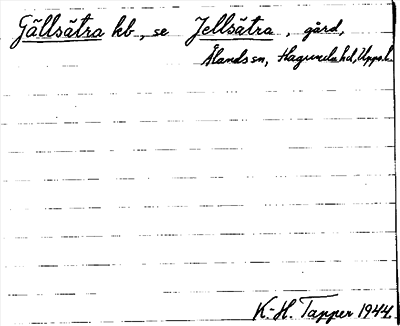 Gällsätra kb, se Jellsätra, gård,
Ålands sn, Hagunda hd, Upps. l.
K.-H. Tapper 1944.